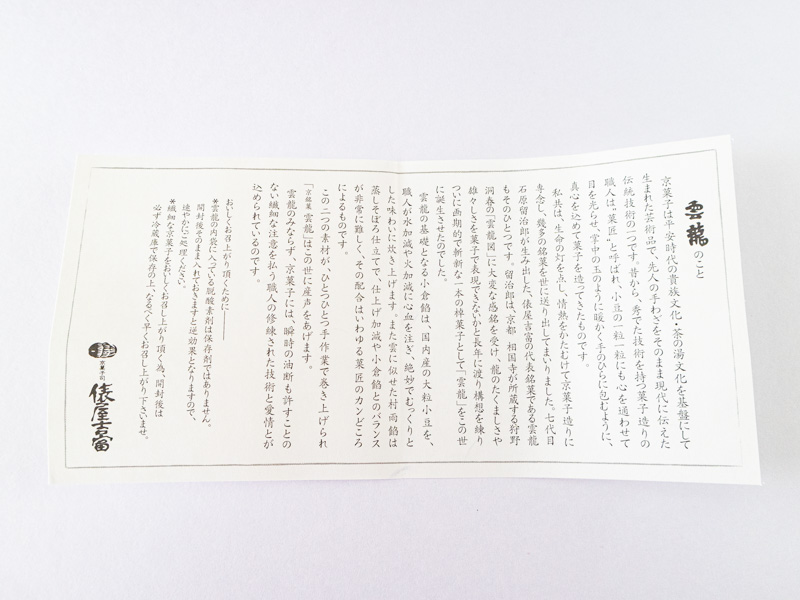 雲龍のこと
京菓子は平安時代の貴族文化・茶の湯文化を基盤にして
生まれた芸術品で、先人の手わざをそのまま現代に伝えた
伝統技術の一つです。昔から、秀でた技術を持つ菓子造りの
職人は、“菓匠”と呼ばれ、小豆の一粒一粒にも心を通わせて
目を光らせ、掌中の玉のように暖かく手のひらに包むように、
真心を込めて菓子を造ってきたものです。
私共は、生命の灯を点し、情熱をかたむけて京菓子造りに
専念し、幾多の銘菓を世に送り出してまいりました。七代目
石原留治郎が生み出した、俵屋吉富の代表銘菓である雲龍
もそのひとつです。留治郎は、京都 相国寺が所蔵する狩野
洞春の「雲龍図」に大変な感銘を受け、龍のたくましさや
雄々しさを菓子で表現できないかと長年に渡り構想を練り
ついに画期的で斬新な一本の棹菓子として「雲龍」をこの世
に誕生させたのでした。
雲龍の基礎となる小倉餡は、国内産の大粒小豆を、
職人が水加減や火加減に心血を注ぎ、絶妙でむっくりと
した味わいに炊き上げます。また雲に似せた村雨餡は
蒸しそぼろ仕立てで、仕上げ加減や小倉餡とのバランス
が非常に難しく、その配合はいわゆる菓匠のカンどころ
によるものです。
この二つの素材が、ひとつひとつ手作業で巻き上げられ
「京銘菓 雲龍」はこの世に産声をあげます。
雲龍のみならず、京菓子には、瞬時の油断も許すことの
ない繊細な注意を払う職人の修練された技術と愛情とが
込められているのです。
おいしくお召上がり頂くために――
＊雲龍の内袋に入っている脱酸素剤は保存剤ではありません。
開封後そのまま入れておきますと逆効果となりますので、
速やかにご処理ください。
＊繊細な京菓子をおいしくお召し上がり頂く為、開封後は
必ず冷蔵庫で保存の上、なるべく早くお召し上がり下さいませ。
京菓子司
俵屋吉富